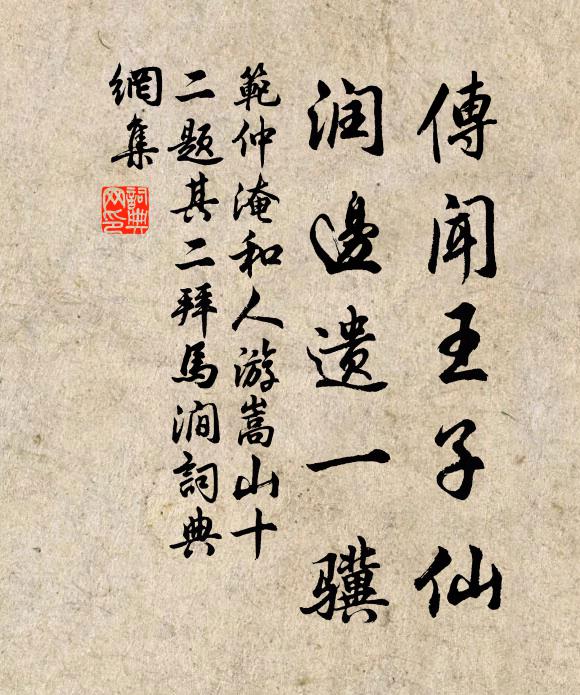 傳闻王子仙
润邊遗一骥
範仲淹和人游嵩山十
二题其二拜馬澗詞典
網集
詞典网印